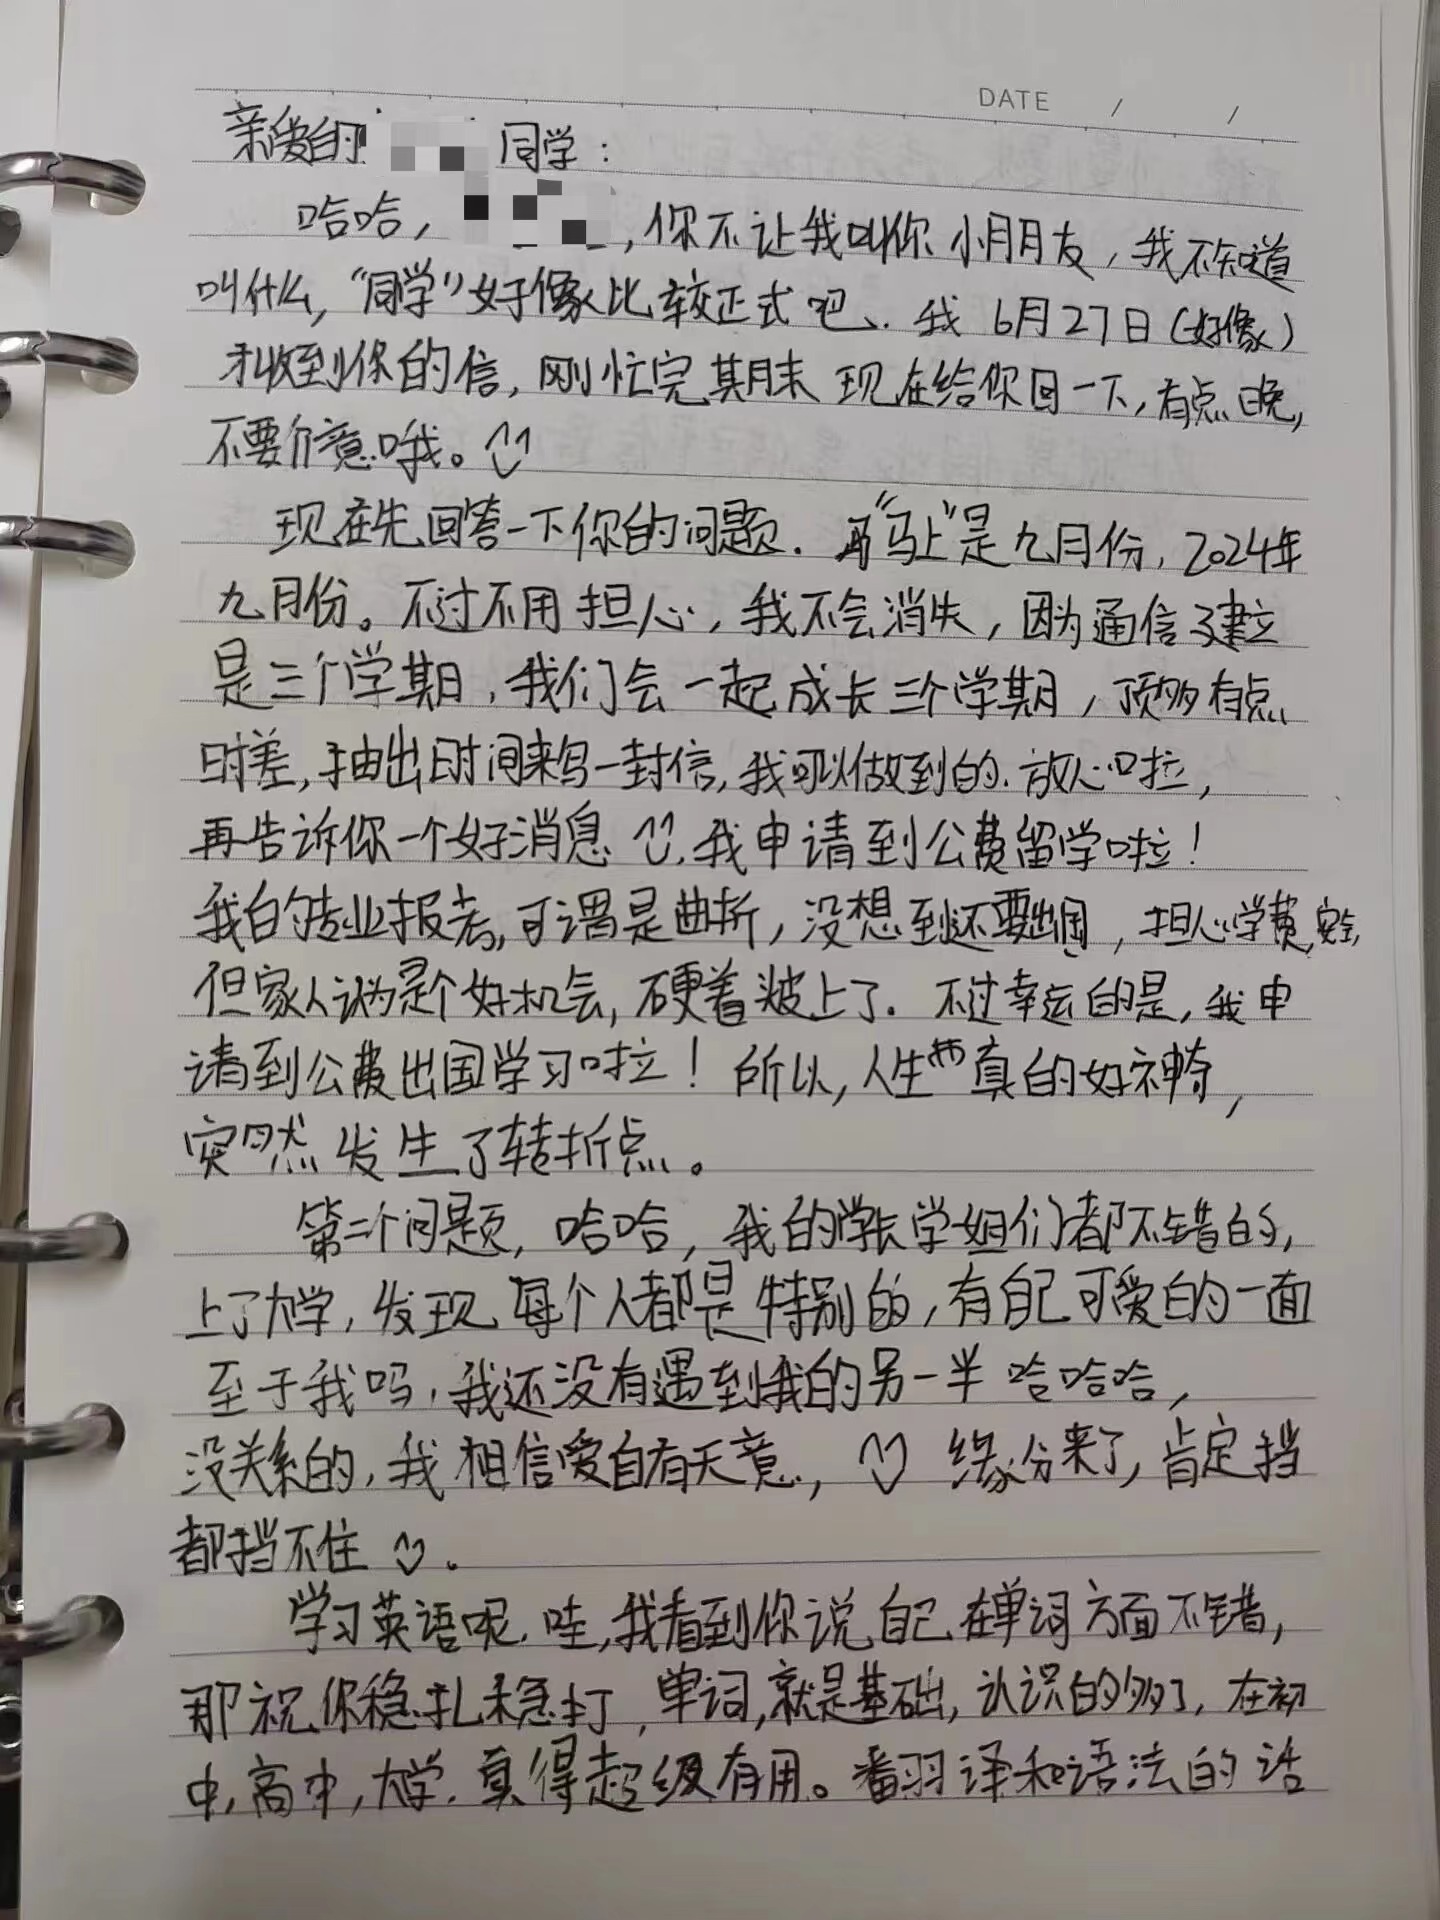 DATE / /
亲爱的 同学：
哈哈， ，你不让我叫你小朋友，我不知道
叫什么，“同学”好像比较正式吧、我6月27日（好像）
才收到你的信，刚忙完期末 现在给你回一下，有点晚，
不要介意哦。
现在先回答一下你的问题．“马上”是九月份，2024年
九月份。不过不用担心，我不会消失，因为通信建立
是三个学期，我们会一起成长三个学期，顶多有点
时差，抽出时间来写一封信，我可以做到的．放心啦，
再告诉你一个好消息 ，我申请到公费留学啦！
我的专业报考，可谓是曲折，没想到还要出国，担心学费，安全，
但家人认为是个好机会，硬着头皮上了．不过幸运的是，我申
请到公费出国学习啦！所以，人生真的好神奇，
突然发生了转折点。
第二个问题，哈哈，我的学长学姐们都不错的，
上了大学，发现每个人都是特别的，有自己可爱的一面
至于我吗，我还没有遇到我的另一半 哈哈哈，
没关系的，我相信爱自有天意， 缘分来了，肯定挡
都挡不住 ．
学习英语呢，哇，我看到你说自己在单词方面不错，
那祝你稳扎稳打，单词，就是基础，认识的多了，在初
中，高中，大学．真得超级有用。翻译和语法的话